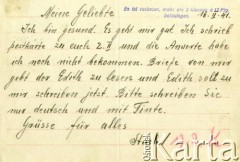 Es ist verboten, mehr als 2 Marken à 12 Pfg. beizulegen.
16.II.41.
Meine Geliebte
Ich bin gesund. Es geht mir gut. Ich schrieb
postkarte zu euch 2.II und die Antwort habe
ich noch nicht bekommen. Briefe von mir
gebt der Edith zu lesen und Edith soll zu
mir schreiben jetzt. Bitte schreiben Sie
mir deutsch und mit Tinte.
Grüsse für alles
Karta